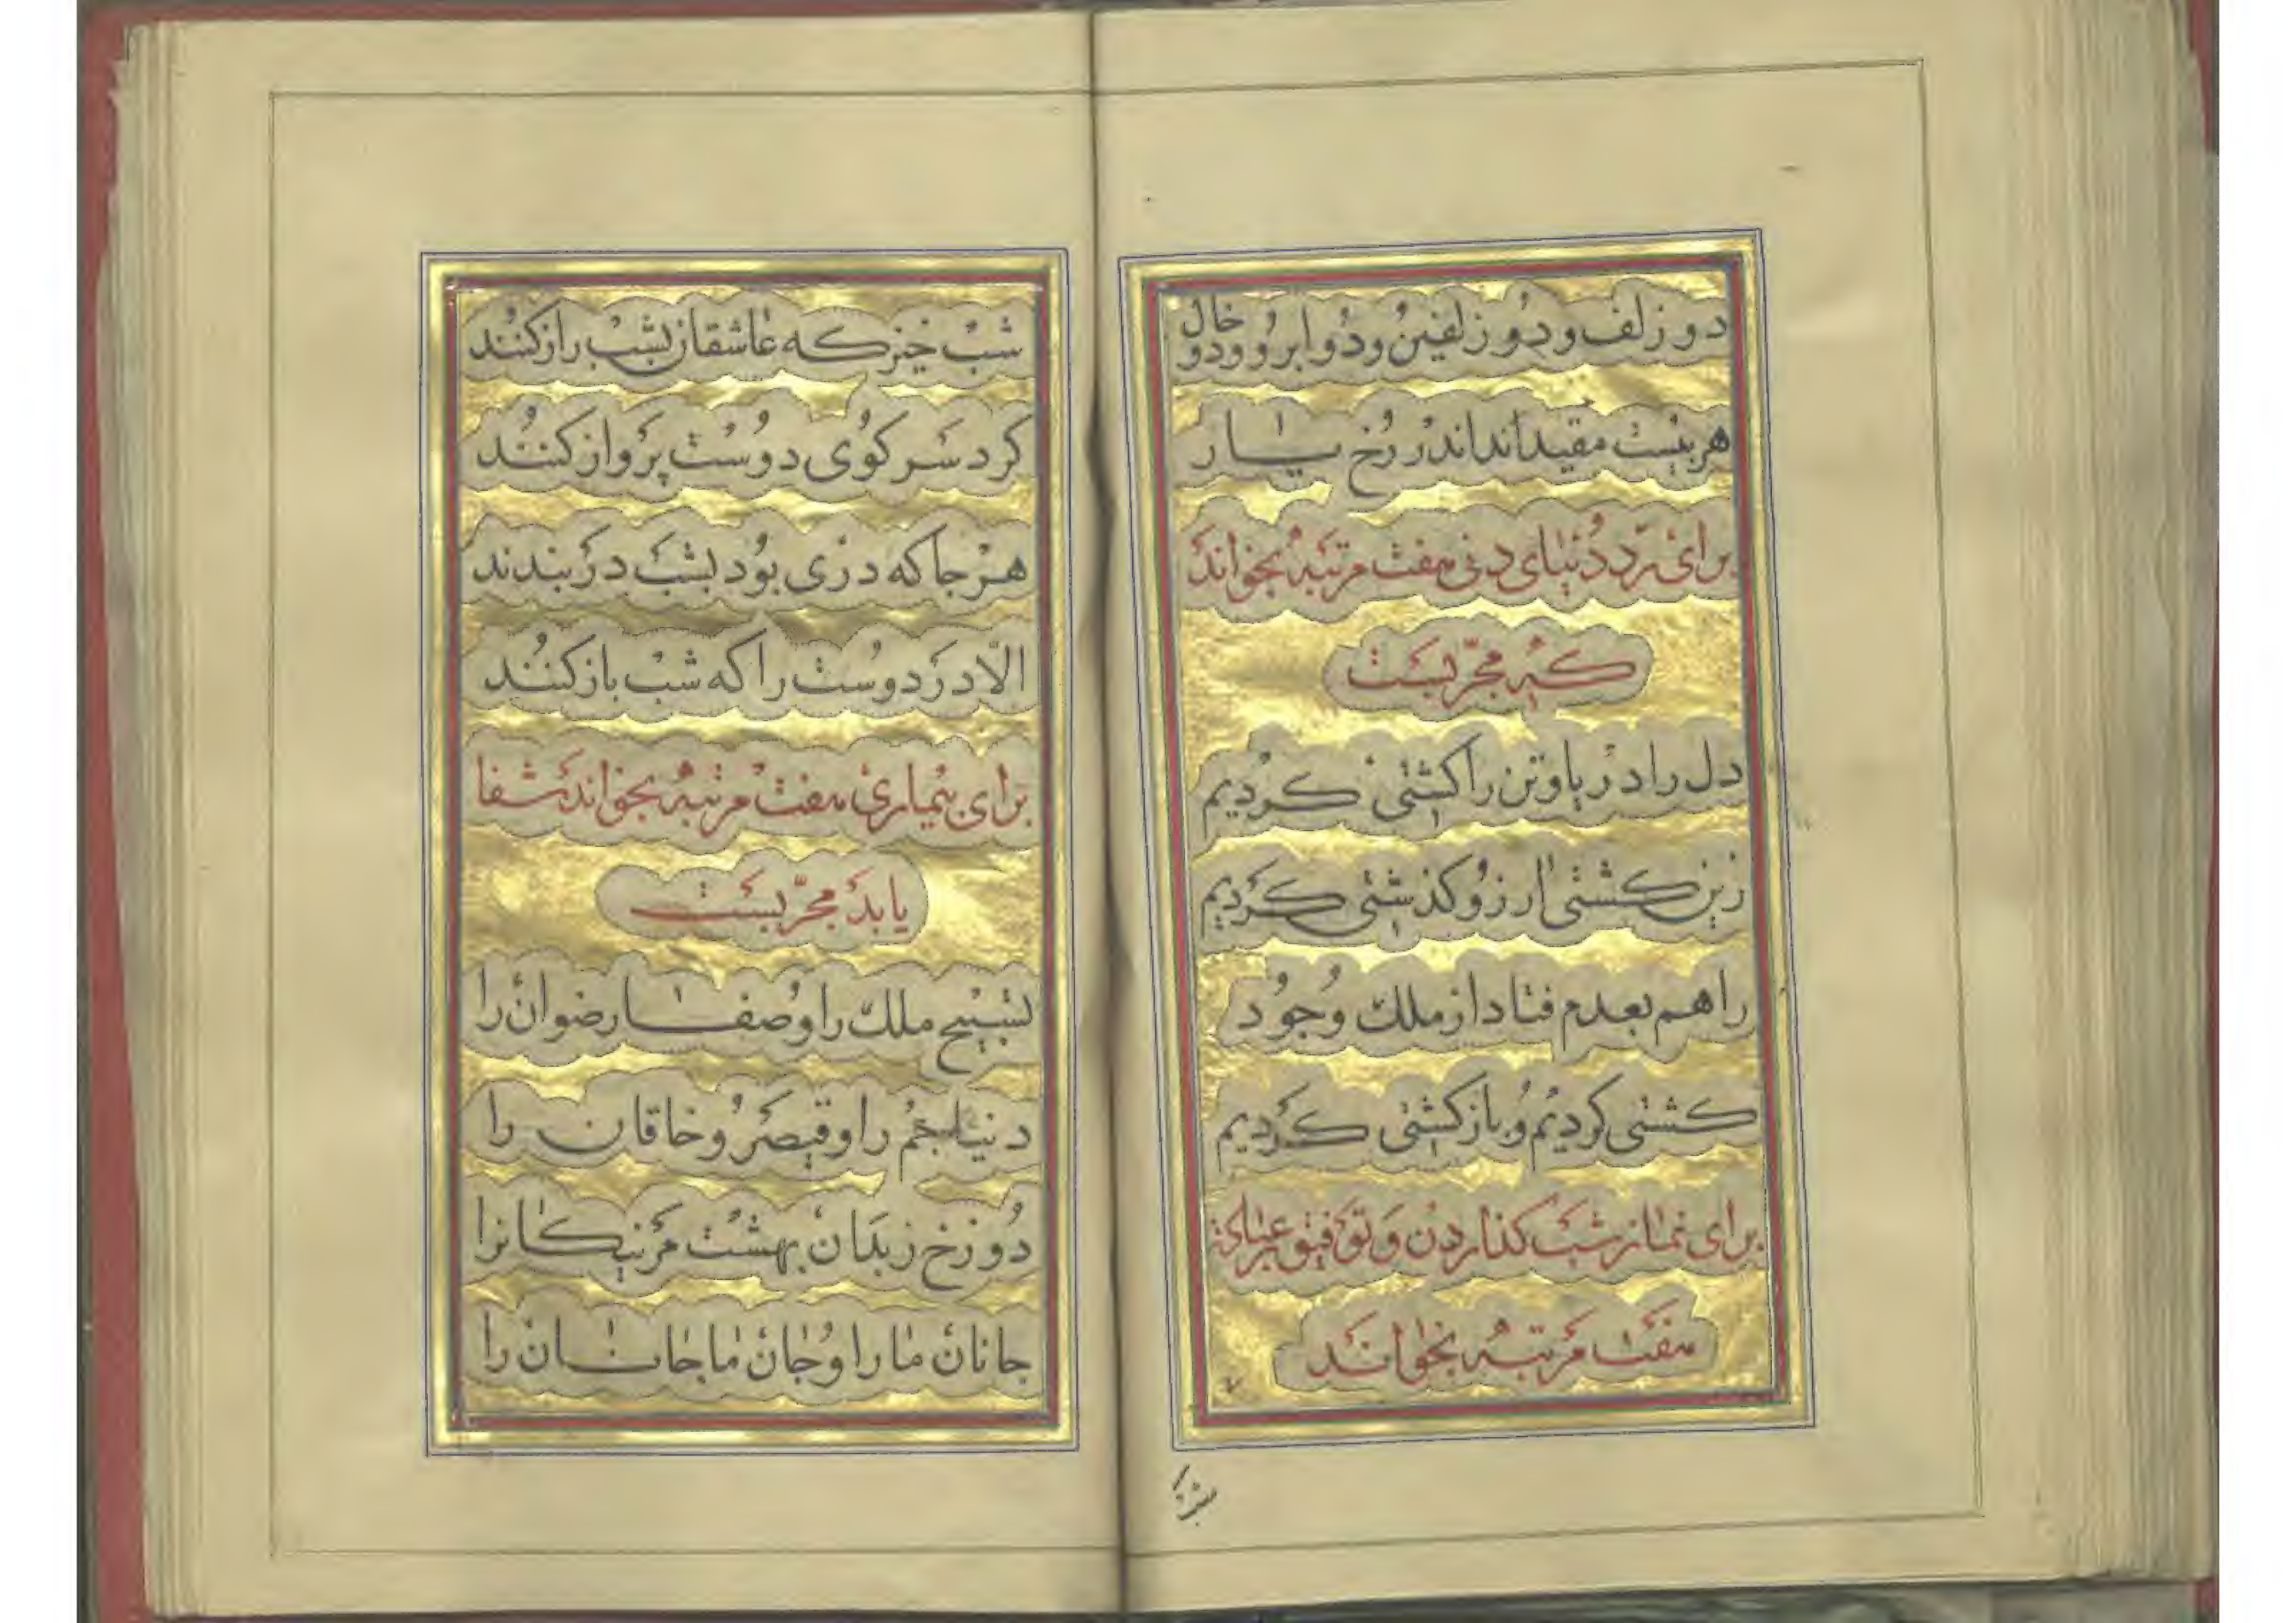 دو زلف و دو زلفین و دو ابرو و دو خال
هر بیست مقید اند اندر رخ یار
برای رد دنیای دنی هفت مرتبه بخواند
که مجربست
دل را دریا و تن را کشتی کردیم
زین کشتی ارزو کذشتی کردیم
راهم بعدم فتاد از ملک وجود
کشتی کردیم و باز کشتی کردیم
برای نماز شب کذاردن و توفیق عبادت
هفت مرتبه بخواند
شب
شب خیز که عاشقان بشب راز کنند
کرد سر کوی دوست پرواز کنند
هر جا که دری بود بشب در بندند
الّا در دوست را که شب باز کنند
برای بیماری هفت مرتبه بخواند شفا
یابد مجرّبست
تسبیح ملک را و صفا رضوان را
دنیا جم را و قیصر و خاقان را
دوزخ ز بدان بهشت مر نیکانرا
جانان ما را و جان ما جانان را